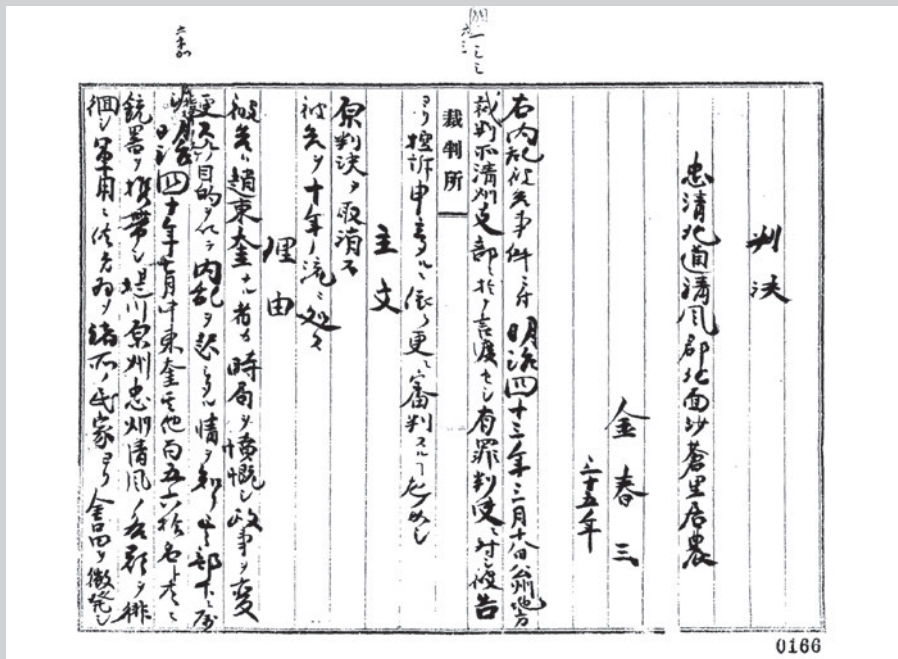 判決
忠清北道清風郡北面沙蒼里居農
金春三
三十五年
右内乱被告事件ニ付明治四十三年三月十八日公州地方
裁判所清州支部ニ於テ言渡セシ有罪判決ニ対シ被告
裁判所
ヨリ控訴申立タルニ依リ更ニ審判スルコト左ノ如シ
主文
原判決ヲ取消ス
被告ヲ十年ノ流ニ処ス
理由
被告ハ趙東奎ナル者カ時局ヲ憤慨シ政事ヲ変
更スルノ目的ヲ以テ内乱ヲ起シタル情ヲ知リ其部下ニ属シ
明治四十年七月中東奎其他百五六拾名ト共ニ
銃器ヲ携帯シ堤川原州忠州清風ノ各郡ヲ徘
徊シ軍用ニ供スル為メ諸所ノ民家ヨリ金品ヲ徴発シ
0166